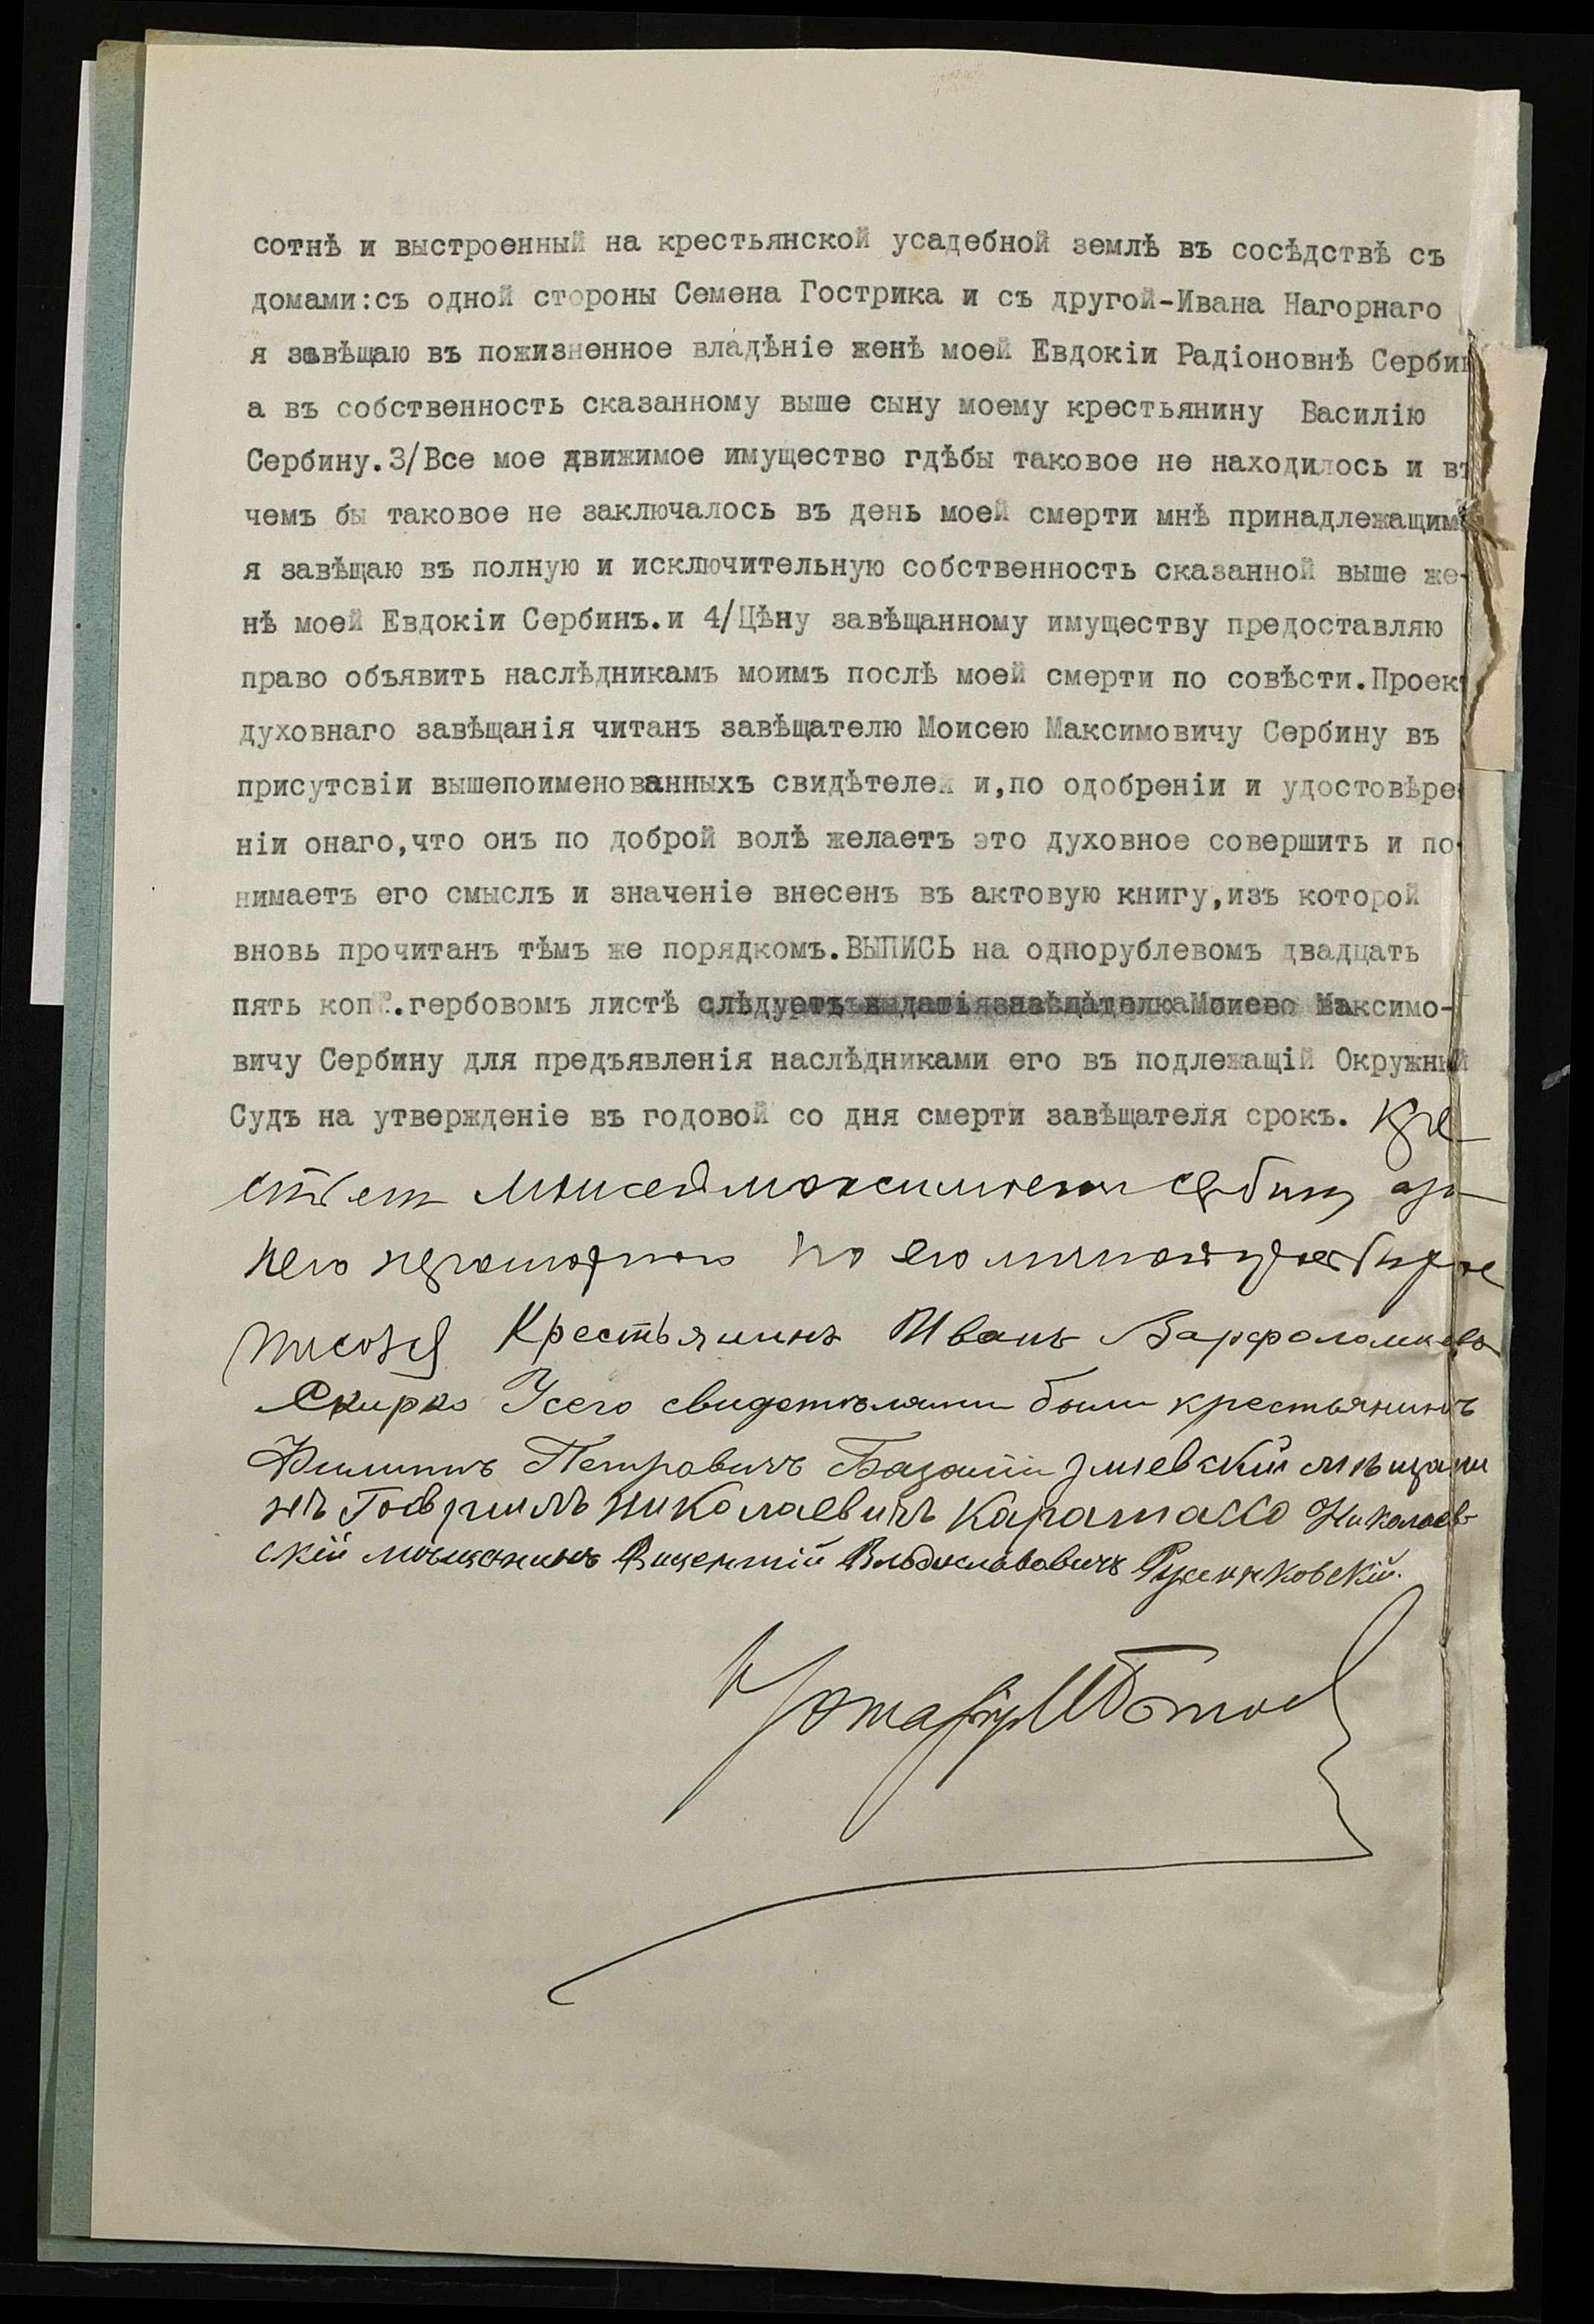 сотнѣ и выстроенный на крестьянской усадебной землѣ въ сосѣдствѣ съ
домами:съ одной стороны Семена Гострика и съ другой-Ивана Нагорнаго
я завѣщаю въ пожизненное владѣніе женѣ моей Евдокіи Радіоновнѣ Сербин
а въ собственность сказанному выше сыну моему крестьянину Василію
Сербину.3/Все мое движимое имущество гдѣбы таковое не находилось и въ
чемъ бы таковое не заключалось въ день моей смерти мнѣ принадлежащимъ
я завѣщаю въ полную и исключительную собственность сказанной выше же-
нѣ моей Евдокіи Сербинъ.и 4/Цѣну завѣщанному имуществу предоставляю
право объявить наслѣдникамъ моимъ послѣ моей смерти по совѣсти.Проект
духовнаго завѣщанія читанъ завѣщателю Моисею Максимовичу Сербину въ
присутсвіи вышепоименованныхъ свидѣтелей и,по одобреніи и удостовѣре-
ніи онаго,что онъ по доброй волѣ желаетъ это духовное совершить и по-
нимаетъ его смыслъ и значеніе внесенъ въ актовую книгу,изъ которой
вновь прочитанъ тѣмъ же порядкомъ.ВЫПИСЬ на однорублевомъ двадцать
пять коп.гербовомъ листѣ слѣдуетъ выдать завѣщателю Моисею Максимо-
вичу Сербину для предъявленія наслѣдниками его въ подлежащій Окружный
Судъ на утвержденіе въ годовой со дня смерти завѣщателя срокъ. Кре
Моисей сербин а за
него неграмотного по его личной
Крестьянинъ Иванъ Варфоломиевъ
Скирко Усего свидетѣлями были крестьянинъ
Филиппъ Петровичъ Змиевский мѣщани
нъ Гавриилъ Николаевичъ Николаев-
скій мѣщанинъ Вицентій Владиславовичъ
Нотаріус